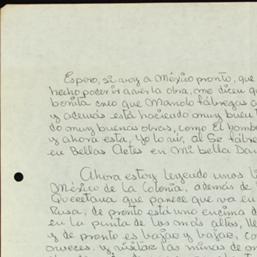 Espero, si voy a México pronto, que
hecho poder ir a ver la obra, me dicen q
bonita creo que Manolo Fábregas
y además está haciendo muy buen
do muy buenas obras, como El homb
y ahora esta, Yo lo vi, al Sr Fábre
en Bellas Artes en Mi bella Da
Ahora estoy leyendo unos l
México de la Colonia, además de
Queretana que parece que va en
Rusa, de pronto está uno encima d
en la punta de los más altos, lle
y de pronto es bajar y bajar, co
oweces. y visitar las minas de